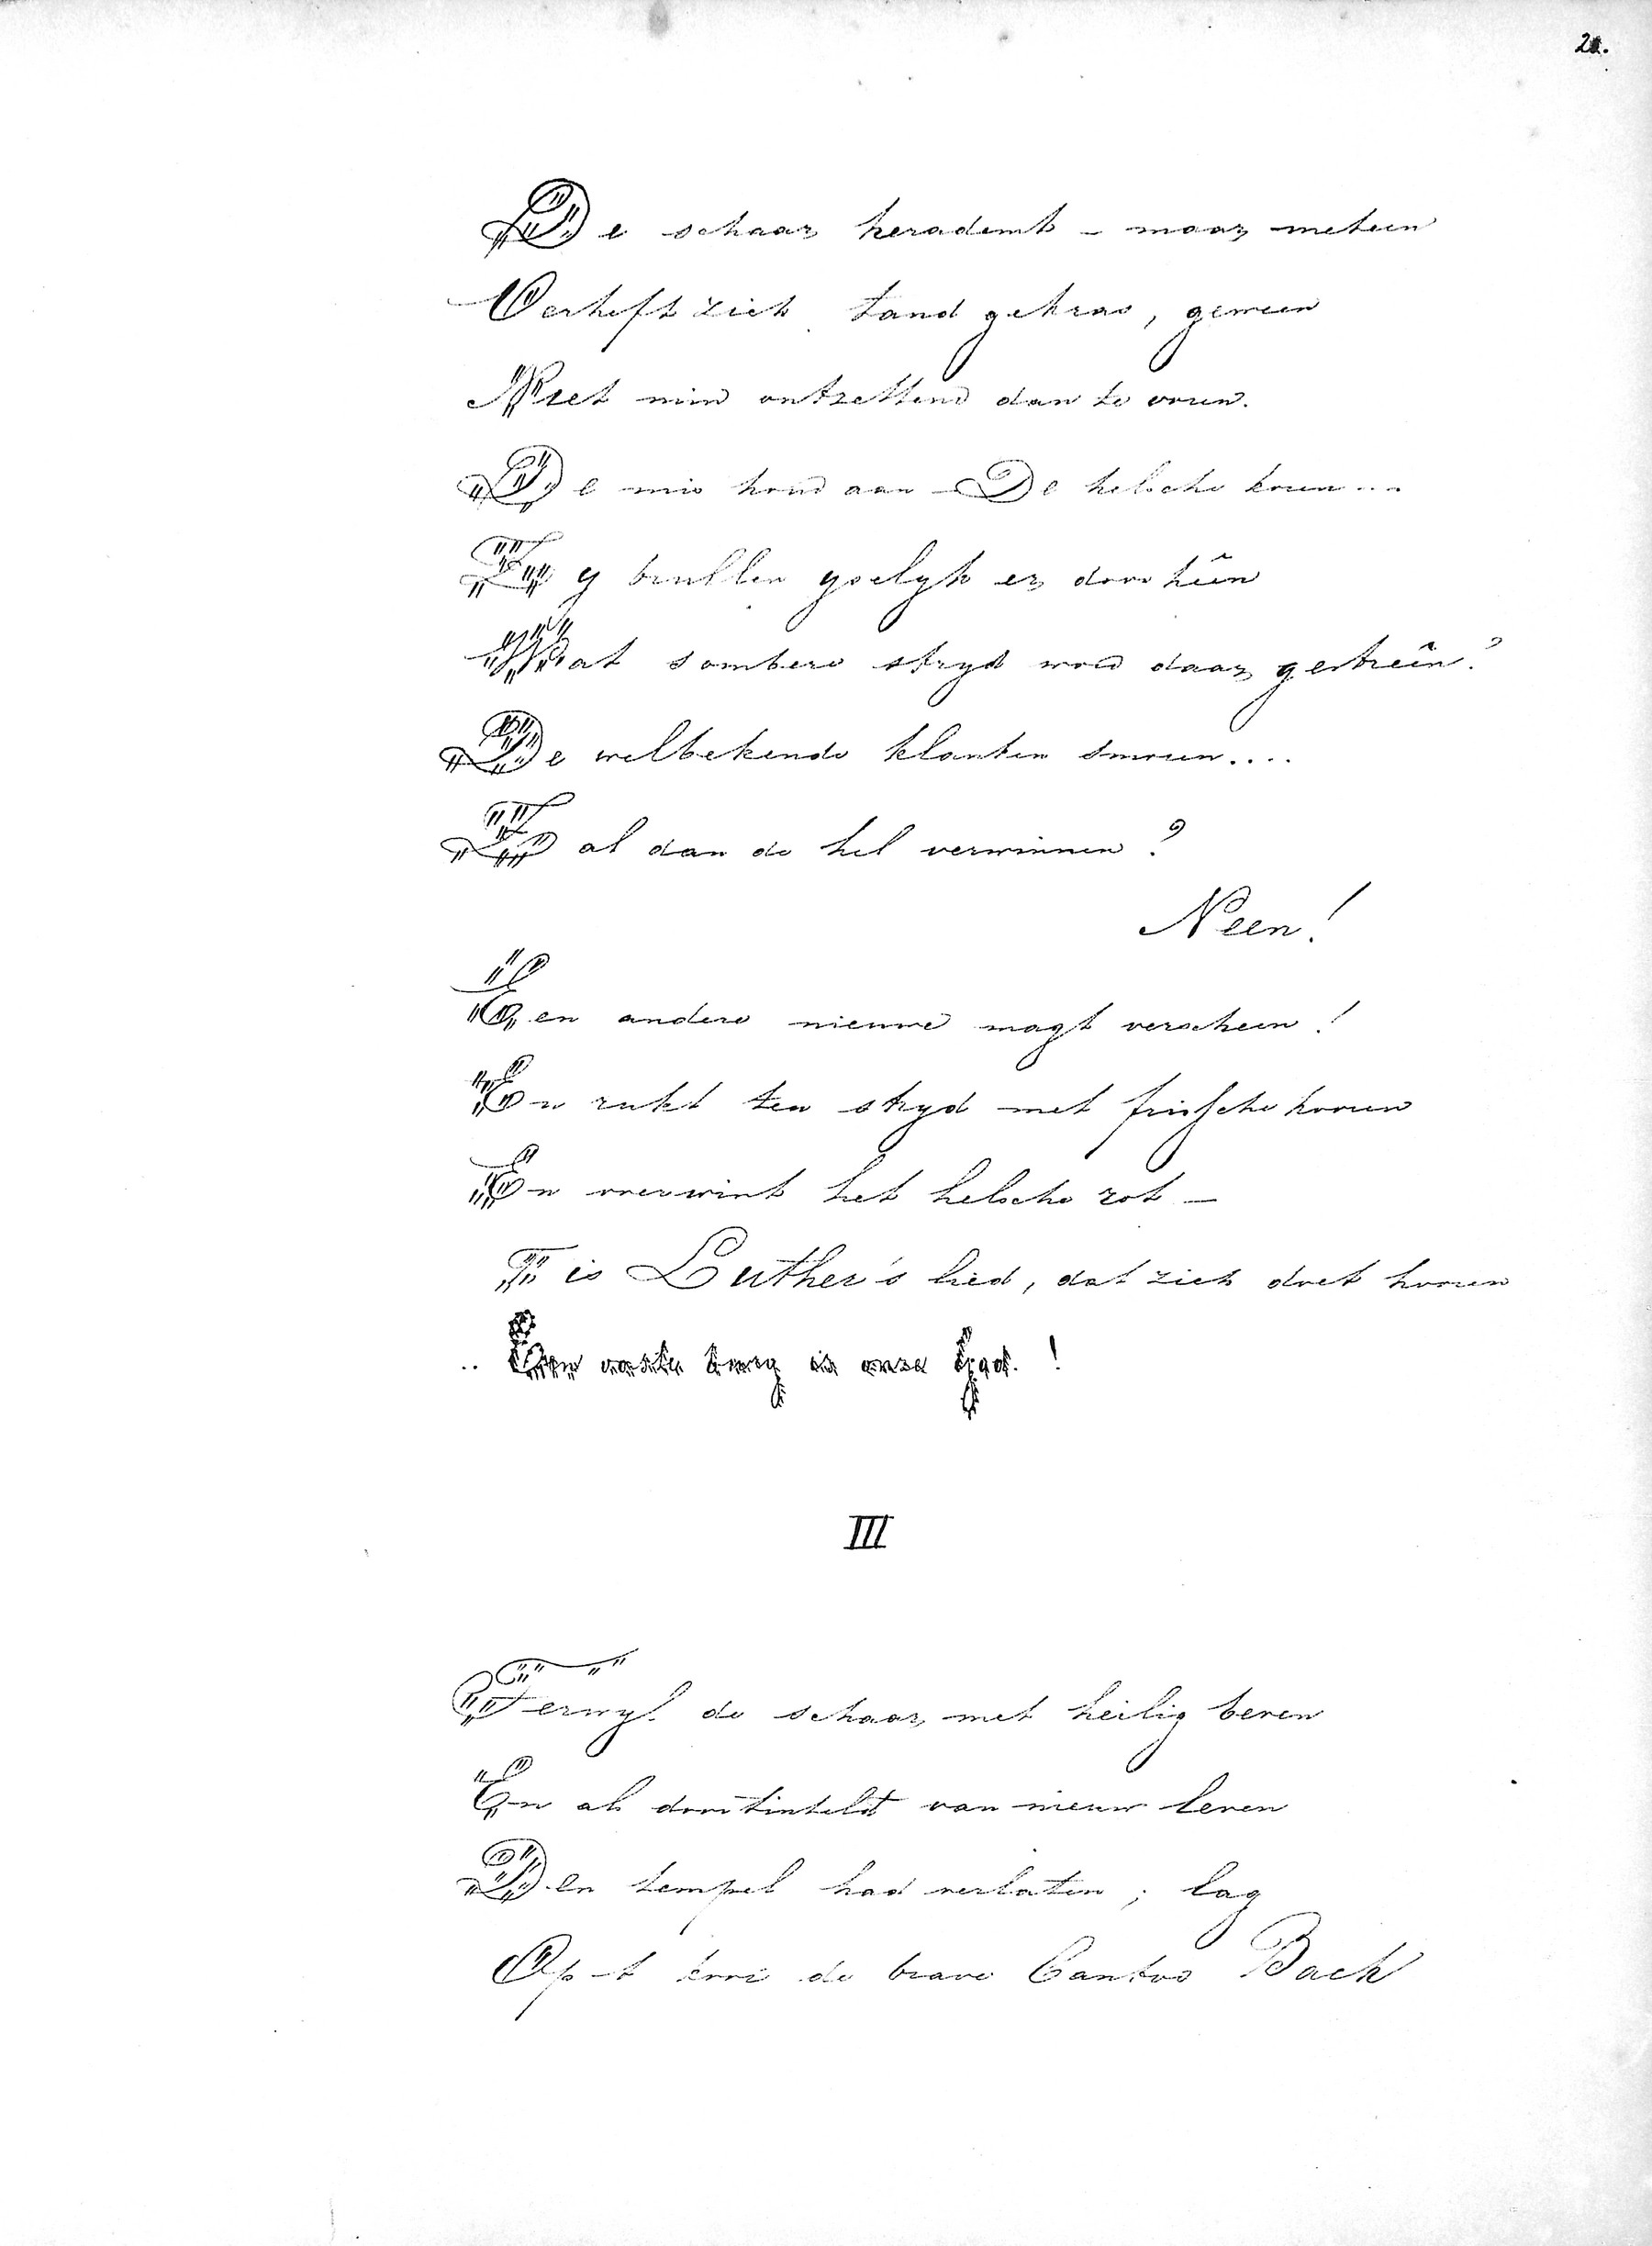 21.
De schaar herademt – maar meteen
Verheft zich tand gekras, geween
Niet min ontzettend dan te voren.
De mis houd aan – De helsche koren...
Zy brullen yselyk er door hêen
Wat sombere stryd word daar gestreên?
De welbekende klanken smoren....
Zal dan de hel verwinnen?
Neen!
Een andere nieuwe magt verscheen!
En rukt ten stryd met frissche kooren
En overwint het helsche rot –
T is Luther's lied, dat zich doet hooren
.. Een vaste burg is onze God. !
III
Terwyl de schaar, met heilig beven
En als doortinteld van nieuw leven
Den tempel had verlaten; lag
Op -t koor de brave Cantor Bach